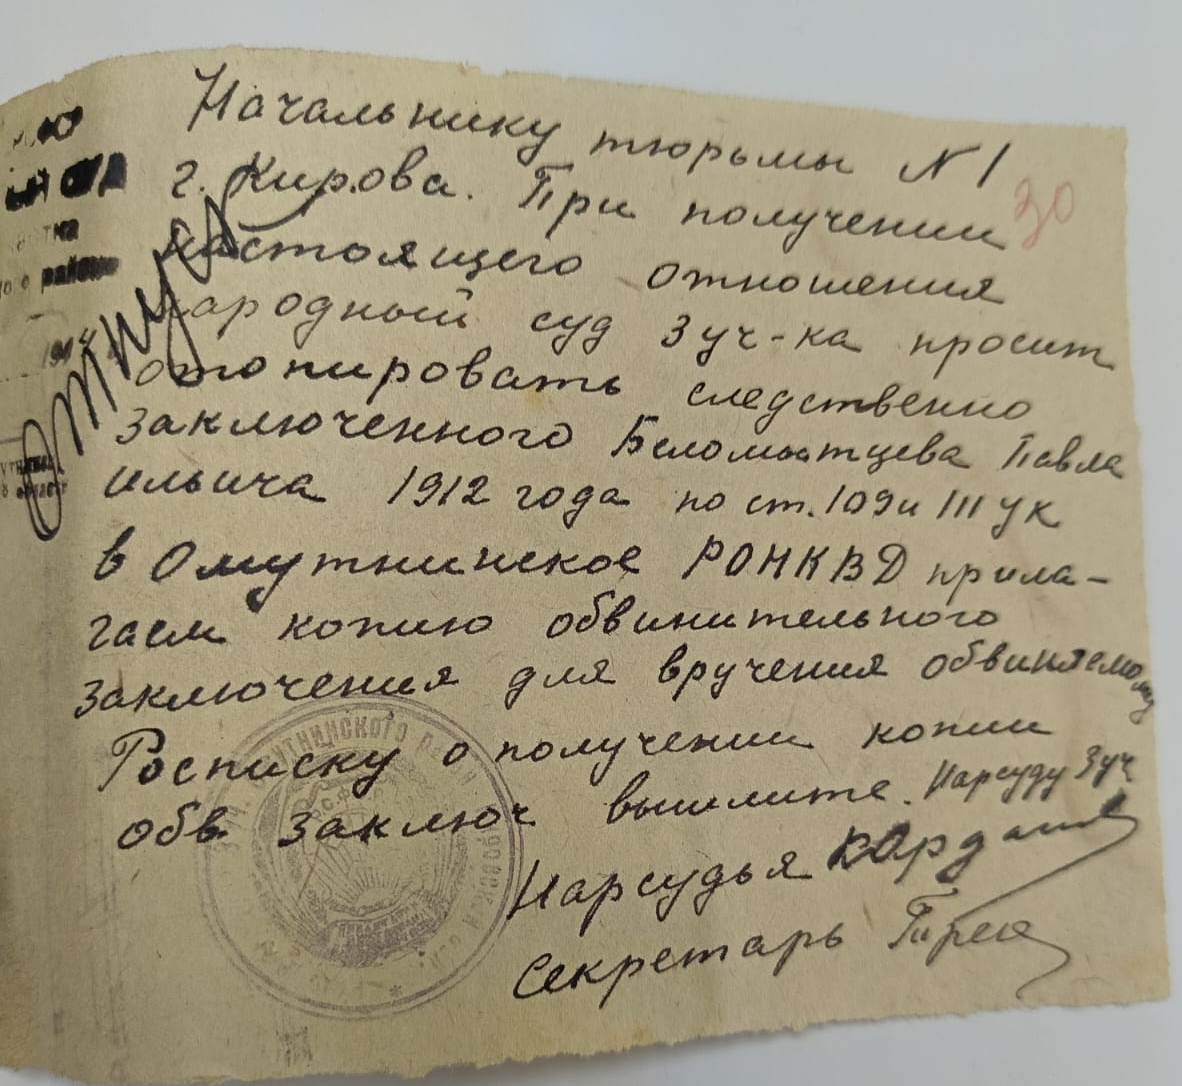 Начальнику тюрьмы N 1
г. Кирова. При получении
30
настоящего отношения
народный суд 3 уч-ка просит
этопировать следственно
заключенного Беломытцева Павла
Ильича 1912 года по ст. 109 и 111 УК
в Омутнинское РОНКВД прила-
гаем копию обвинительного
заключения для вручения обвиняемому
Росписку о получении копии
обв. заключ вышлите. Нарсуду 3 уч
Нарсудья
секретарь
районо
194
ОМУТНИНСКОГО